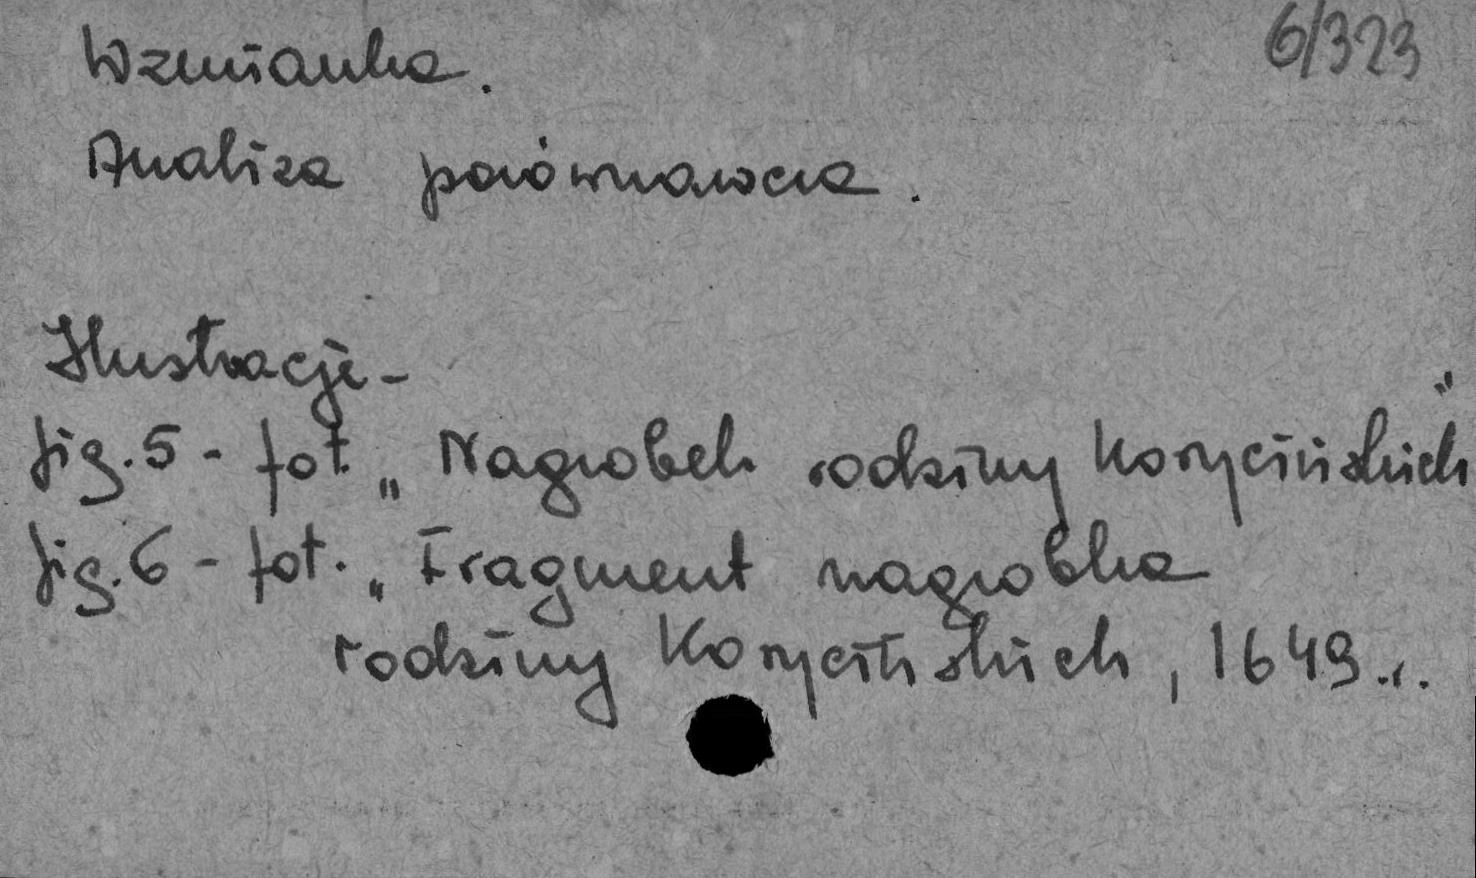 6/323
Wzmianka.
Analiza porównawcza.
Ilustracje -
fig. 5 - fot. „Nagrobek rodziny Korycińskich"
fig. 6 - fot. „Fragment nagrobka
rodziny Korycińskich, 1649 r.